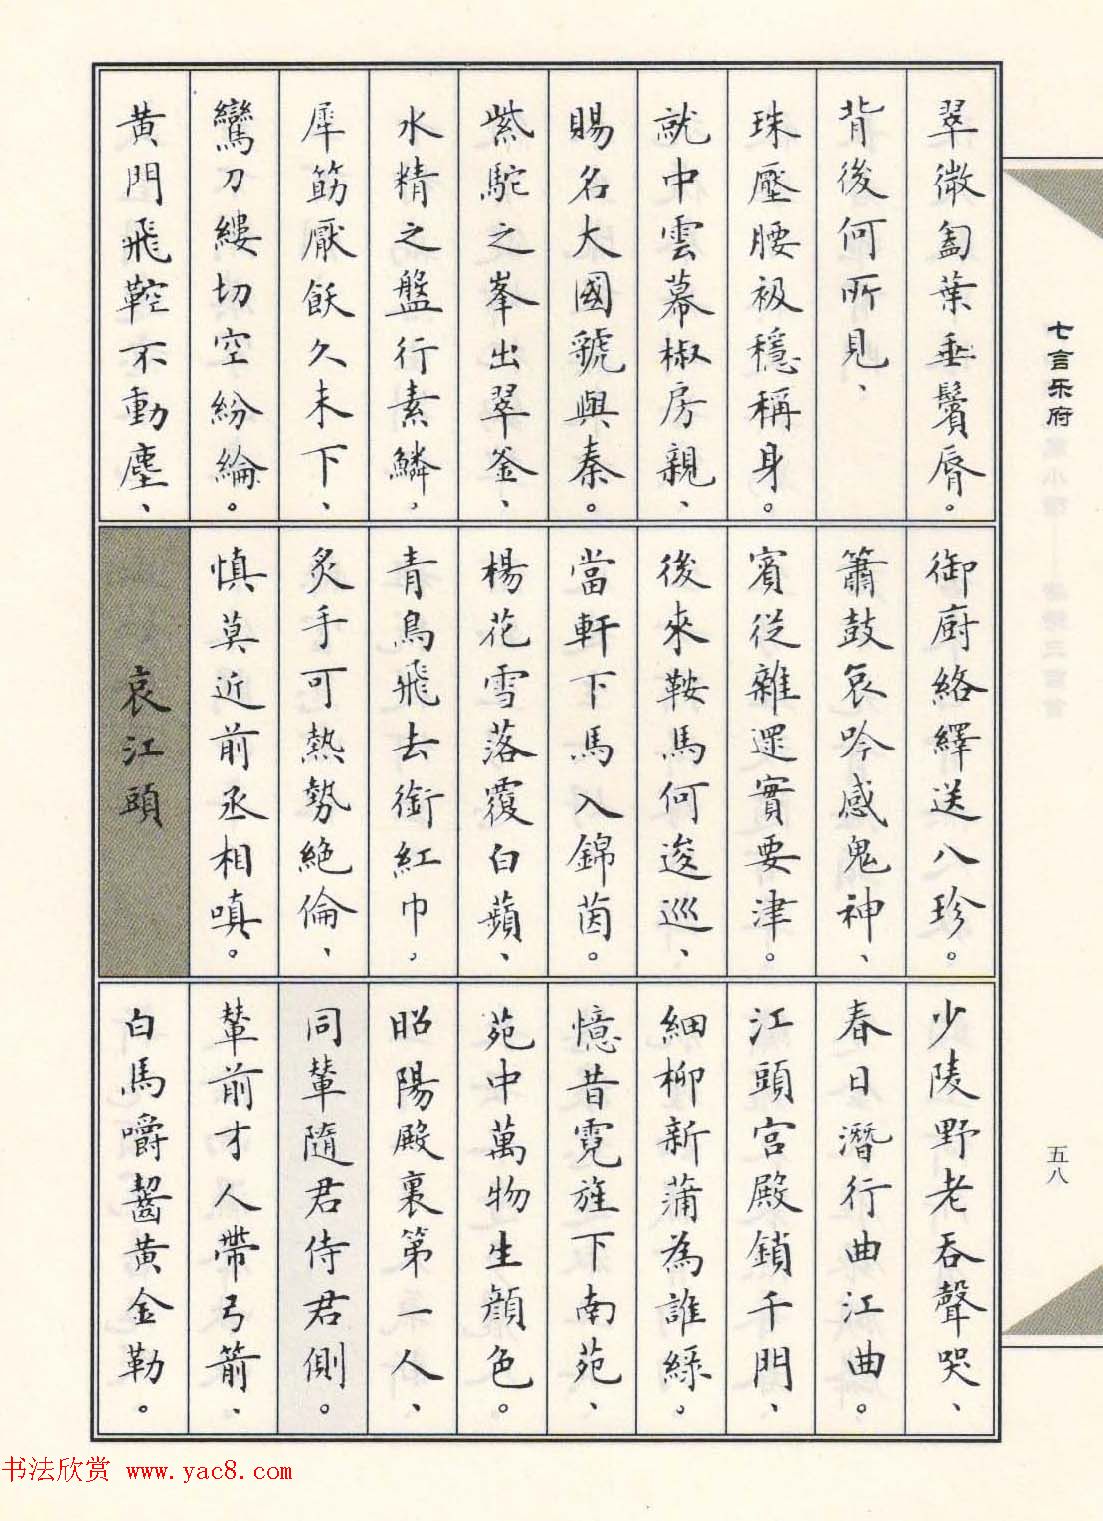 翠微㔩葉垂鬢脣。
背後何所見、
珠壓腰衱穩稱身。
就中雲幕椒房親、
賜名大國虢與秦。
紫駝之峯出翠釜、
水精之盤行素鱗，
犀筯厭飫久未下、
鸞刀縷切空紛綸。
黃門飛鞚不動塵、
御廚絡繹送八珍。
簫鼓哀吟感鬼神、
賓從雜遝實要津。
後來鞍馬何逡巡、
當軒下馬入錦茵。
楊花雪落覆白蘋、
青鳥飛去銜紅巾，
炙手可熱勢絕倫、
慎莫近前丞相嗔。
哀江頭
少陵野老吞聲哭、
春日潛行曲江曲。
江頭宮殿鎖千門、
細柳新蒲為誰綠。
憶昔霓旌下南苑、
苑中萬物生顏色。
昭陽殿裏第一人、
同輦隨君侍君側。
輦前才人帶弓箭、
白馬嚼齧黃金勒。
七言乐府
五八
书法欣赏 www.yac8.com